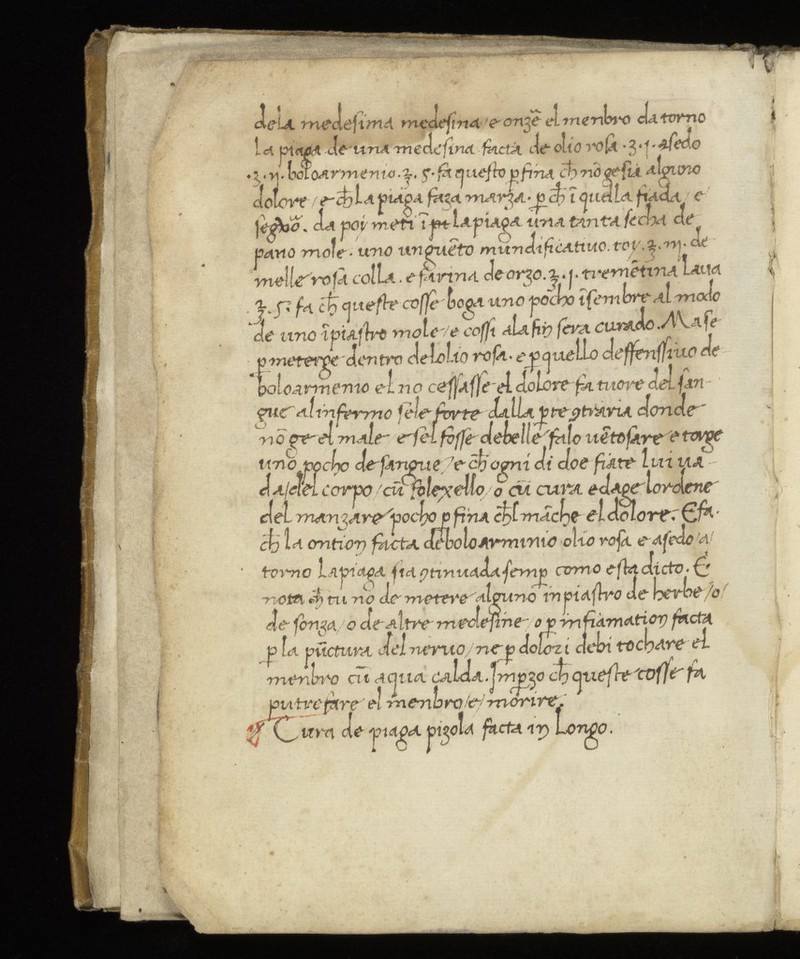 dela medesima medesina / e onzẽ el menbro da torno
la piaga de una medesina facta de olio rosa · ʒ · j · asedo
· ʒ · ij · boloarmenio · ʒ · s · fa questo ꝑ fina ch̃ nõ ge sia alguno
dolore / e ch̃ la piaga faza marza · ꝑ ch̃ ĩ qua la fiada / e
da poi meti ĩ la piaga una tanta secha de
pano mole · uno unguẽto mundificatiuo · toy · ʒ · iij · de
melle rosa colla · e farina de orzo · ʒ · j · tremẽtina laua
ʒ · s · fa ch̃ queste cosse boga uno pocho ĩsembre al modo
de uno ĩpiastro mole / e cossi ala fin sera curado. Ma se
ꝑ meterge dentro del olio rosa · e ꝑ quello deffenssiuo de
boloarmenio el no cessasse el dolore fa tuore del san-
gue al infermo se le forte dalla ꝑte ꝯtraria donde
nõ ge el male e sel fosse debelle falo uẽtosare e torge
uno pocho de sangue / e ch̃ ogni di doe fiate lui ua-
da / del corpo / cũ solexello / o cũ cura e dage lordene
del manzare pocho ꝑ fina ch̃l mãche el dolore. E fa·
ch̃ la ontion facta de boloarminio olio rosa e asedo / a /
torno la piaga sia ꝯtinuada semꝑ como esta dicto. E
nota ch̃ tu nõ de metere alguno inpiastro de herbe / o /
de sonza / o de altre medesine o ꝑ infiamation facta
ꝑ la pũctura del neruo / ne ꝑ dolori debi tochare el
menbro cũ aqua calda. Imꝑzo ch̃ queste cosse fa
putrefare el menbro / e / morire.
Cura de piaga pizola facta in longo.